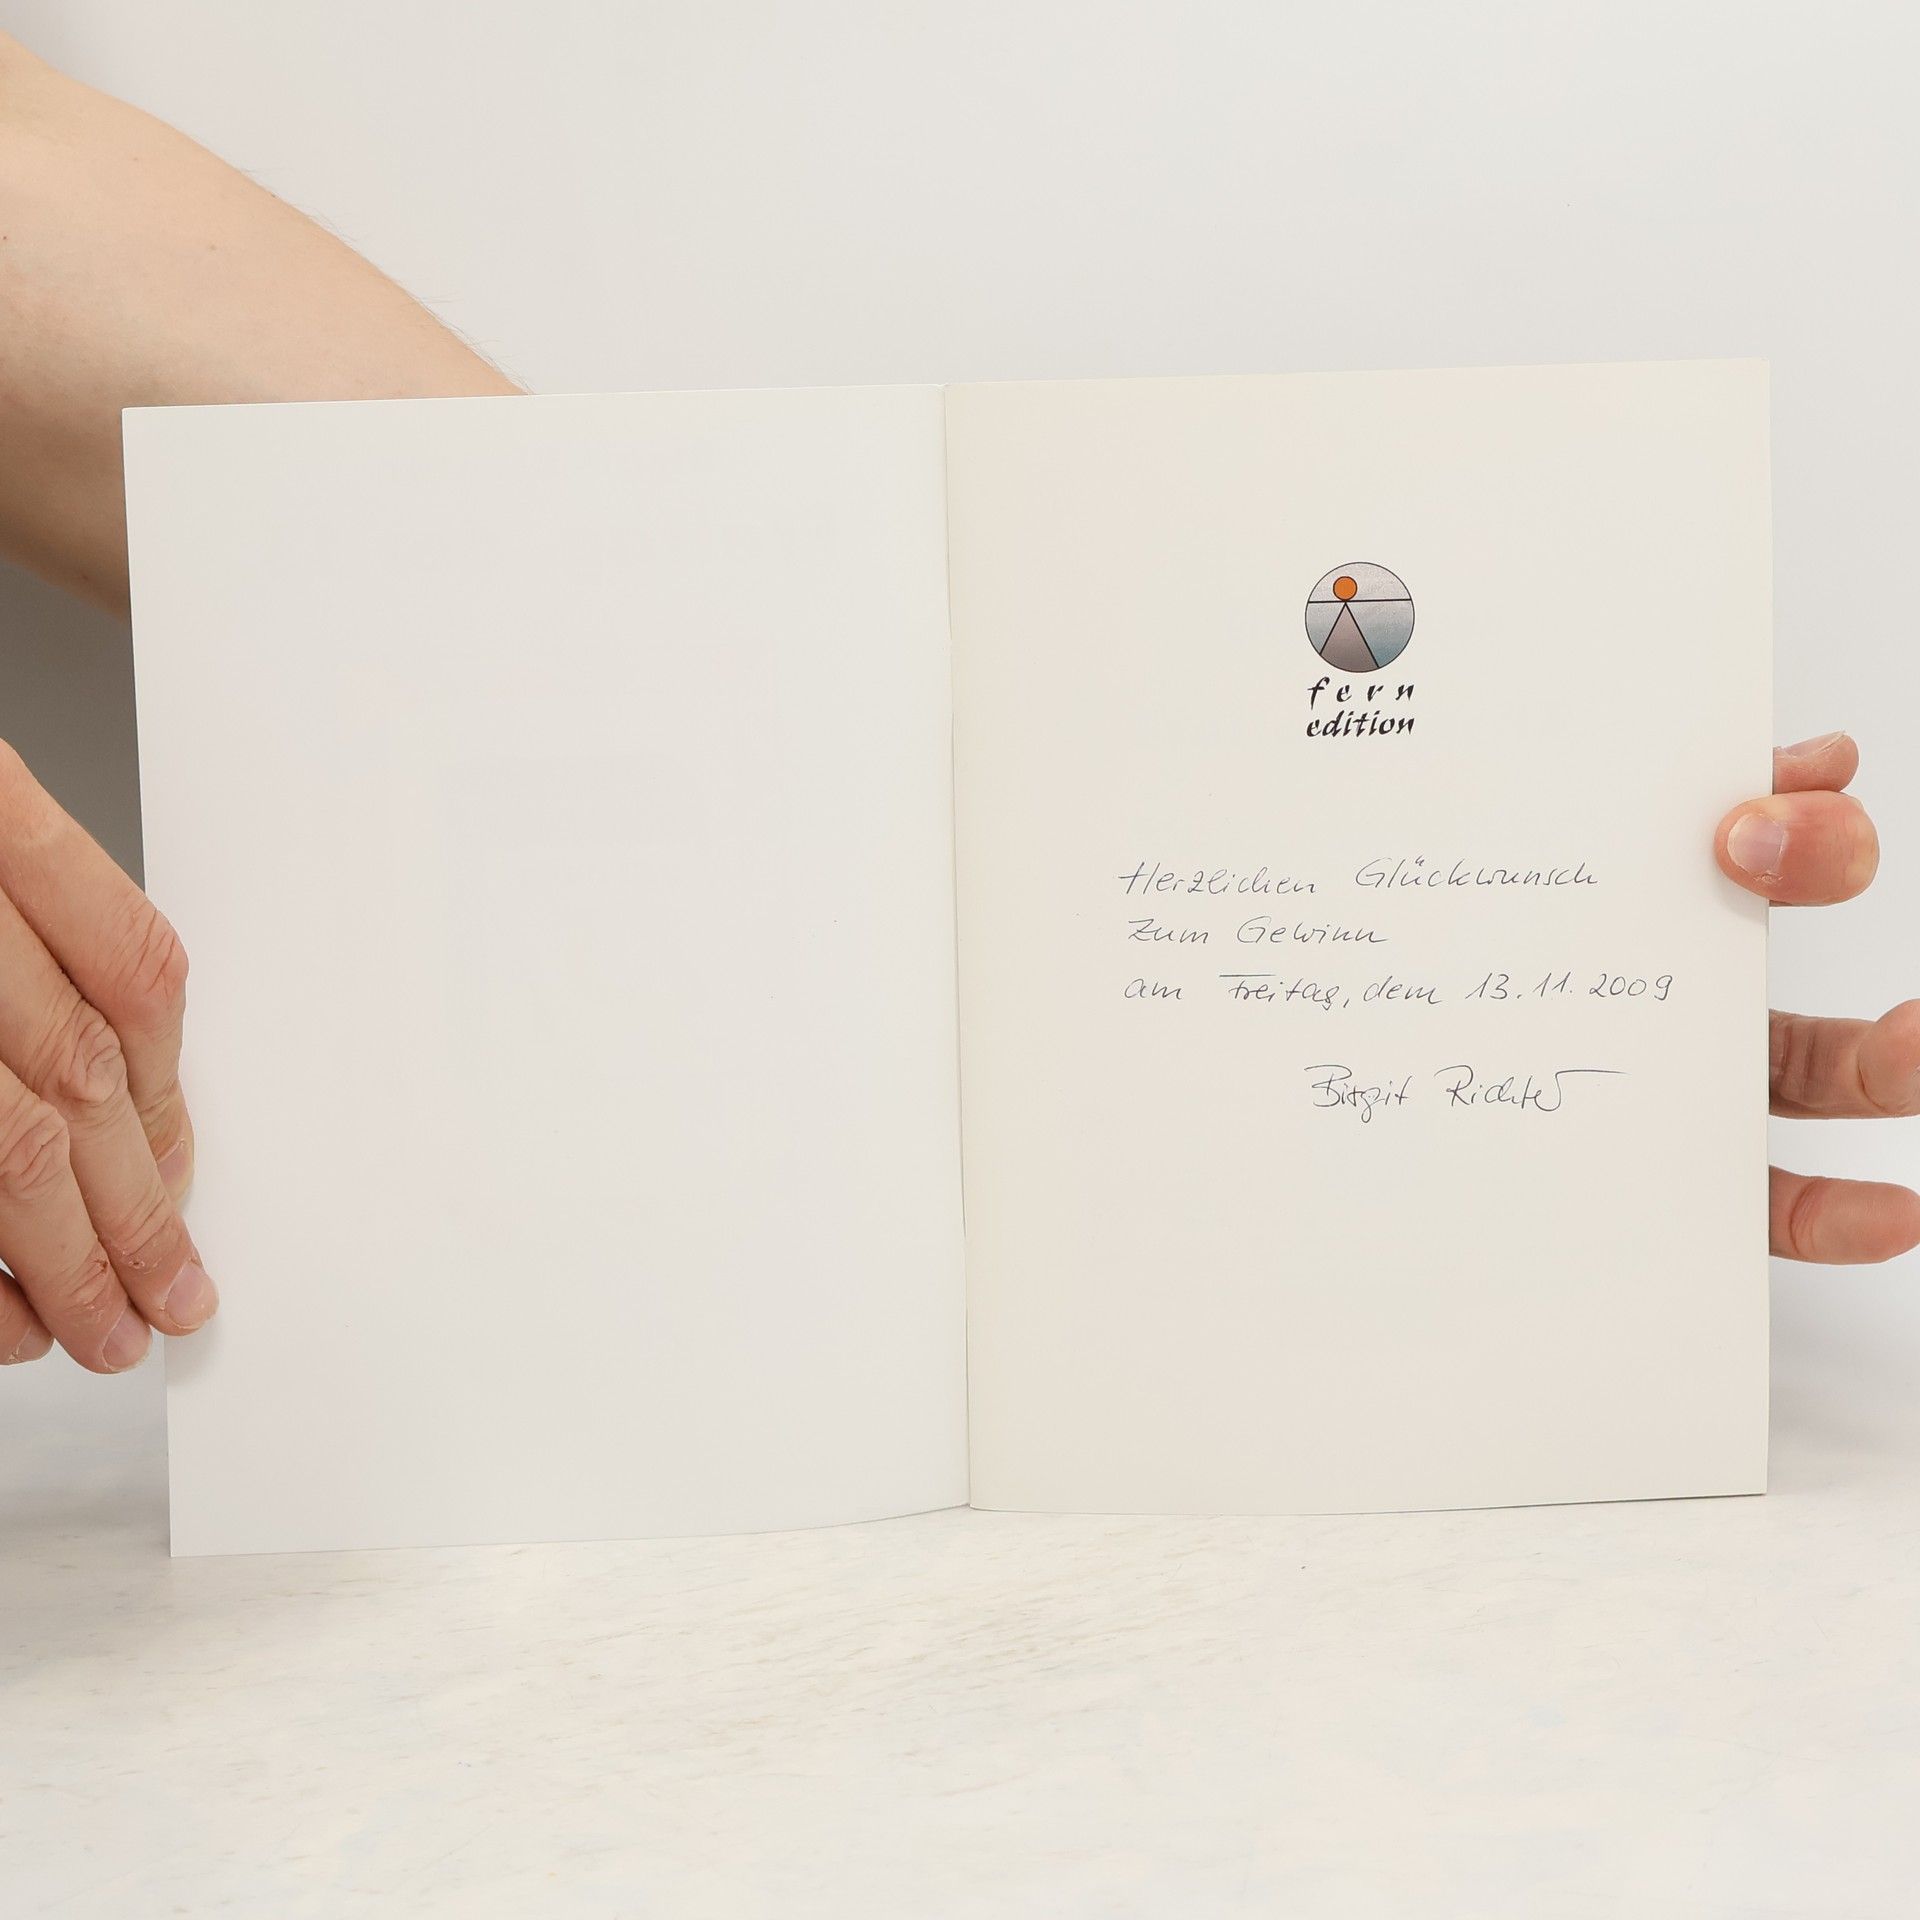 fern
edition
Herzlichen Glückwunsch
zum Gewinn
am Freitag, dem 13.11.2009
Birgit Richter